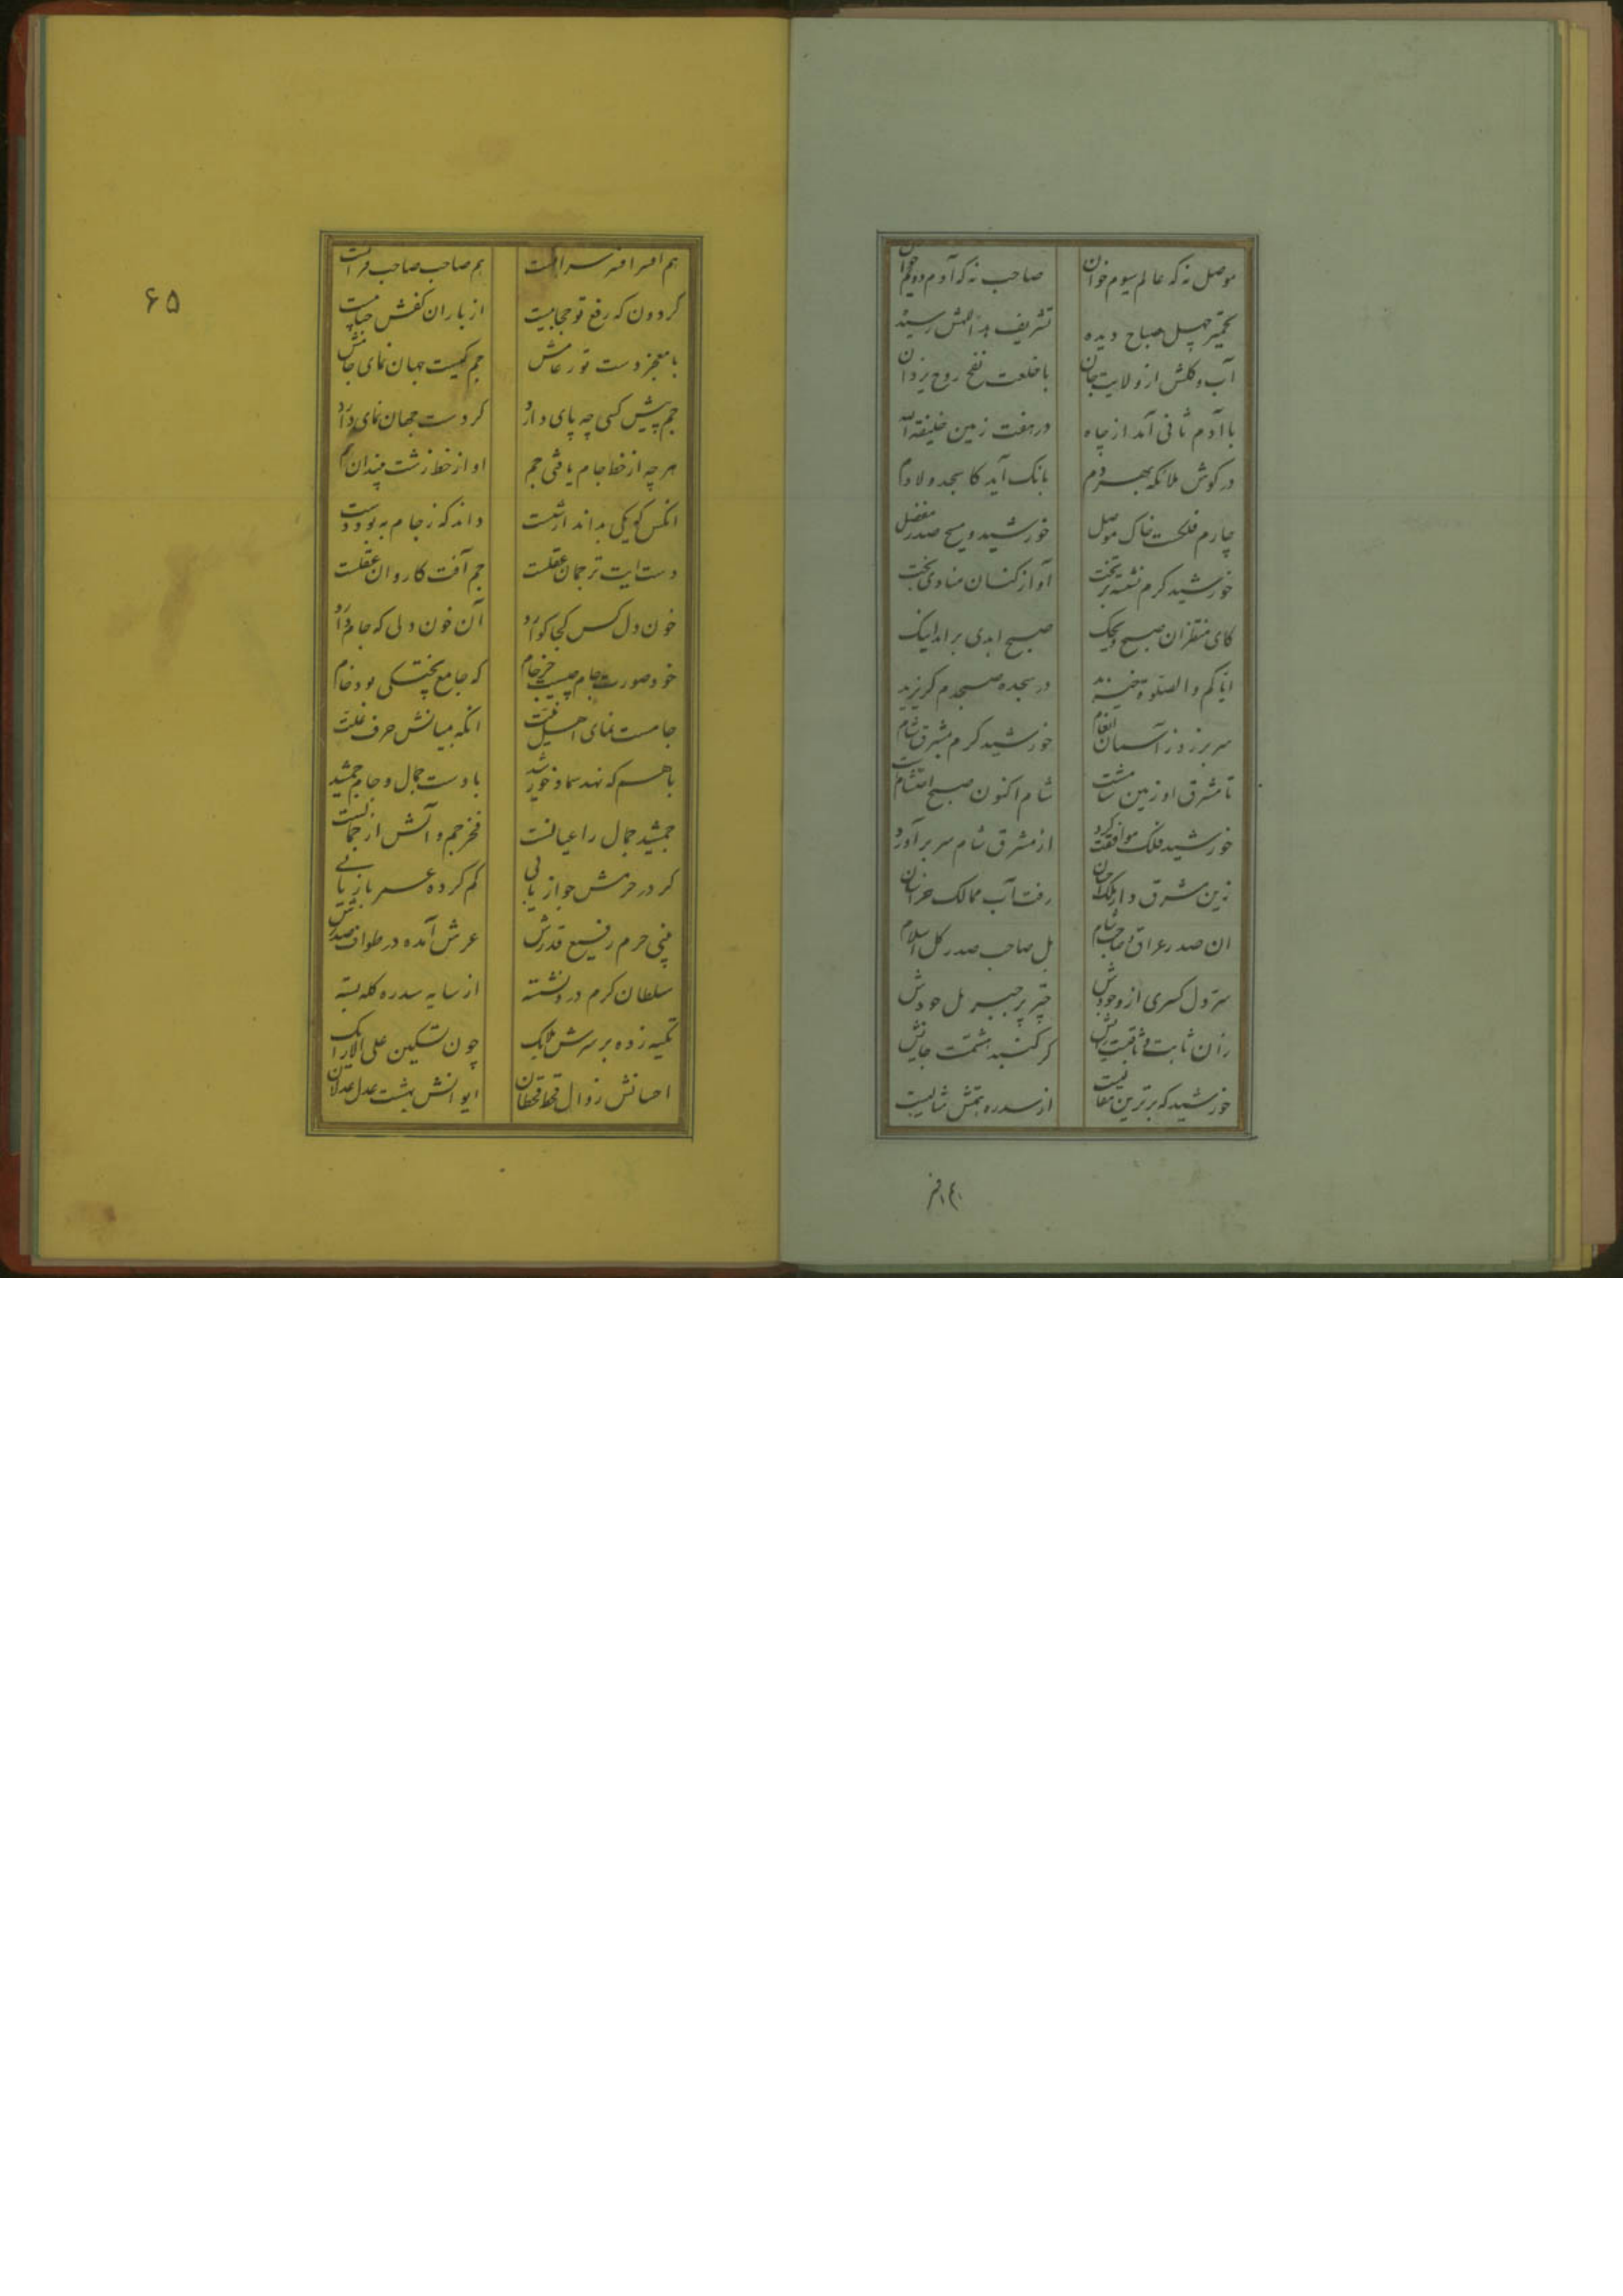 موصل نه که عالم سیوم خوان صاحب نه که آدم دویم خوان
تخمیر چهل صباح دیده تشریف ید اللهش رسیده
آب و گلش از ولایت جان با خلعت نفخ روح یزدان
با آدم ثانی آمد از چاه در هفت زمین خلیفة الله
در کوش ملائکه بهر دم بانک آید کاسجدو لادم
چارم فلکست خاک موصل خورشید و مسیح صدر مفضل
خورشید کرم نشسته بر تخت آواز کنان منادی بخت
کای منتظران صبح صبح ابدی برآمد اینک
ایاکم و الصلوة خیزید در سجده صبحدم کریزید
سر بر زد ز آسمان انعام خورشید کرم مشرق شام
تا مشرق او زمین شامست شام اکنون صبح احتشامست
خورشید فلک موافقت کرد از مشرق شام سر برآورد
زین مشرق دار ملک رفت آب ممالک خراسان
ان صدر عراق و صاحب شام بل صاحب صدر کل اسلام
سر دل کسری از وجودش چتر پر جبرئیل جودش
زان ثابت و ثاقبست رایش کر کنبد هشتمت جایش
خورشید که برترین مقامیست از سدره
۱۴ افسر
۶۵
هم افسر افسر سرانست هم صاحب صاحب قرانست
کردون که رفع تو حجابیست از باران کفش حبابیست
با معجز دست تور عامش جم کیست جهان نمای جامش
جم پیش کسی چه پای دارد کز دست جهان نمای دارد
هر چه از خط جام یافتی جم او از خط زشت میندان کم
انکس که یکی بداند از شست داند که ز جام به بود دست
دست ایت ترجمان عقلست جم آفت کاروان عقلست
خون دل کس کجا کوارد آن خون دلی که جام دارد
خود صورت جام چیست جز خام که جامع پختکی بود خام
جامست نمای اهل علت انکه میانش حرف علت
با هر که نهد سما و خورشید با دست جمال و جام جمشید
جمشید جمال را عیانست فخر جم و آتش از جمانست
کر در حرمش جواز یابی کم کرده عمر باز یابی
بینی حرم رفیع قدرش عرش آمده در طواف صدرش
سلطان کرم درو نشسته از سایه سدره کله بسته
تکیه زده بر سرش ملایک چون متکین علی الارائک
احسانش زوال قحط قحطان ایوانش بهشت عدل عدنان